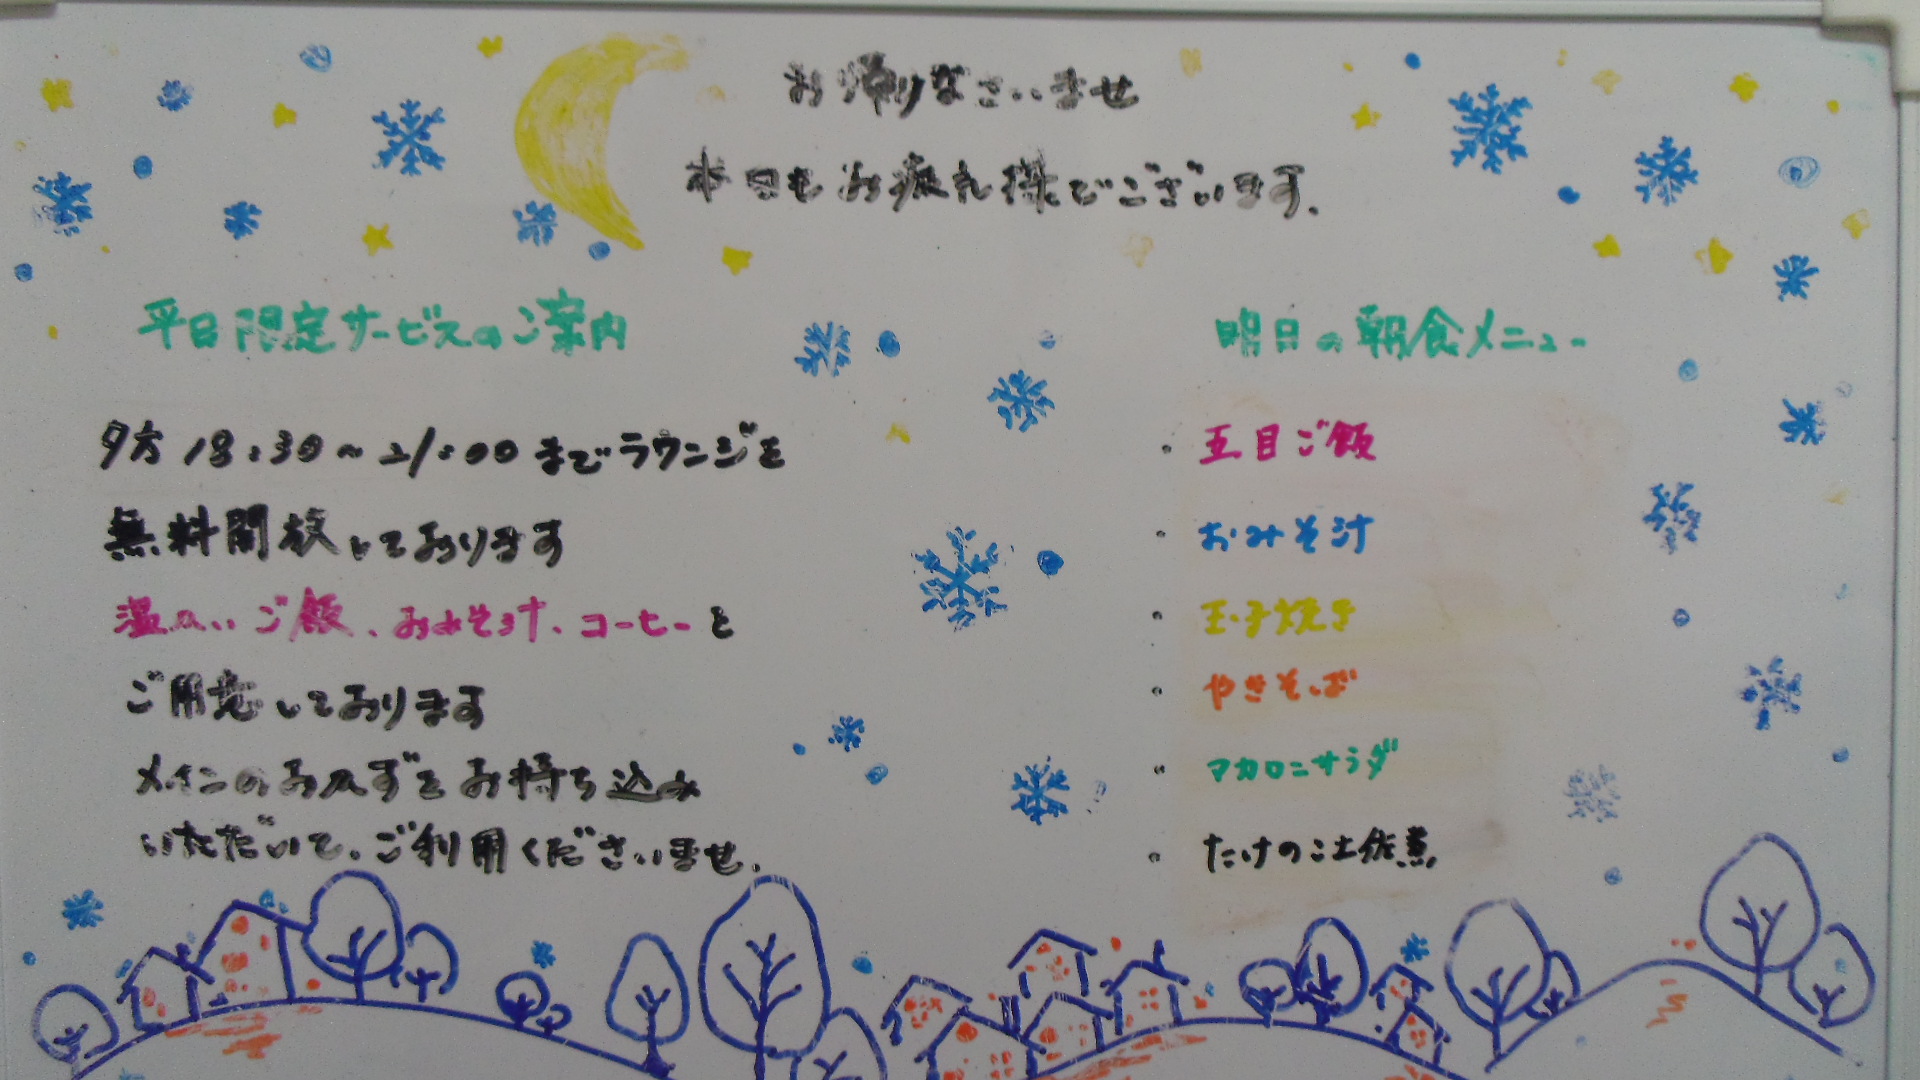 お帰りなさいませ
本日もお疲れ様でございます.
平日限定サービスのご案内
夕方 18:30～21:00 までラウンジを
無料開放しております
温かいご飯、おみそ汁、コーヒーを
ご用意しております
メインのおかずをお持ち込み
いただいて、ご利用くださいませ.
明日の朝食メニュー
・五目ご飯
・おみそ汁
・玉子焼き
・やきそば
・マカロニサラダ
・たけのこ土佐煮